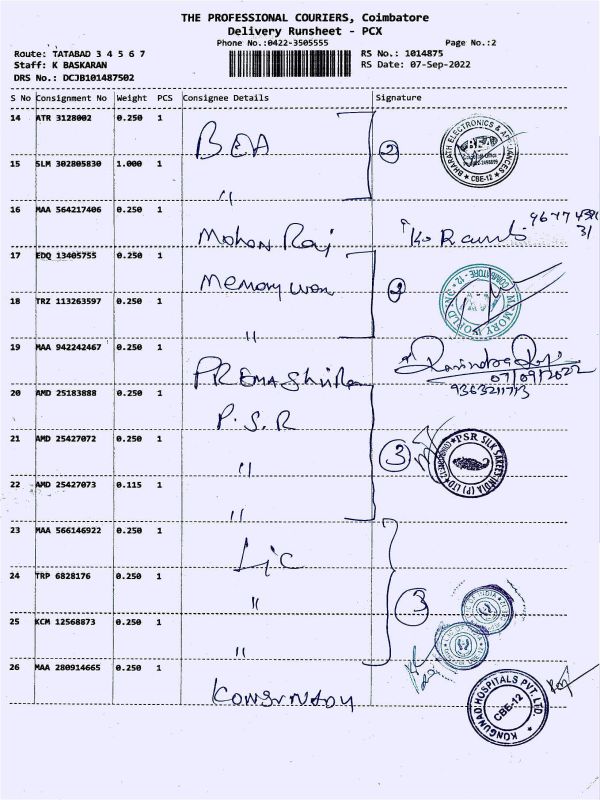 THE PROFESSIONAL COURIERS, Coimbatore
Delivery Runsheet - PCX
Phone No.:0422-3505555 Page No.:2
Route: TATABAD 3 4 5 6 7 RS No.: 1014875
Staff: K BASKARAN RS Date: 07-Sep-2022
DRS No.: DCJB101487502
S No Consignment No Weight PCS Consignee Details Signature
14 ATR 3128002 0.250 1
BEA 2
BHARATH ELECTRONICS & APPLIANCES
CBE-12
15 SLM 302805830 1.000 1
"
16 MAA 564217406 0.250 1
Mohan Raj
17 EDQ 13405755 0.250 1
Memory 2
MEMORY WORLD COIMBATORE - 12
18 TRZ 113263597 0.250 1
"
19 MAA 942242467 0.250 1
07/09/2022
9363211713
20 AMD 25183888 0.250 1
P.S.R
21 AMD 25427072 0.250 1
" 3
PSR SILK SAREES INDIA (P) LTD
22 AMD 25427073 0.115 1
"
23 MAA 566146922 0.250 1
Lic
24 TRP 6828176 0.250 1
" 3
25 KCM 12568873 0.250 1
"
26 MAA 280914665 0.250 1
KONGUNAD HOSPITALS PVT. LTD.
CBE-12